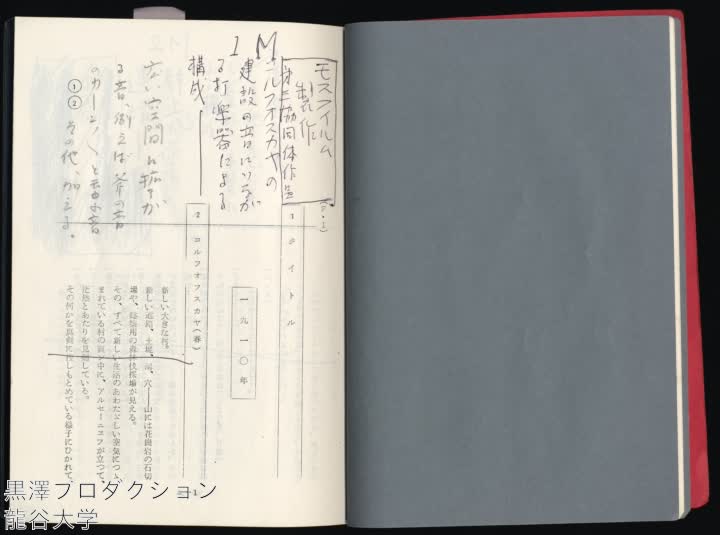 モスフイルム
製作
第二協同体作品
1 タイトル
一九一〇年
1 M
コルフオスカヤの
建設の音にいろが
る打楽器による
構成
2 コルフオフスカヤ(春)
広い空間に拡が
る音、例えば斧の音
のカーン〱と云ふ音
①
② その他、加える。
新しい大きな村。
新しい道路、土堤、河、穴――山には花崗岩の石切
場や、建築用の森林伐採場が見える。
その、すべて新しい生活のあわただしい空気につゝ
まれている村の真ン中に、アルセーニエフが立つて、
茫然とあたりを見廻している。
その何かを真剣に探しもとめている様子にひかれて、
黒澤プロダクション
龍谷大学